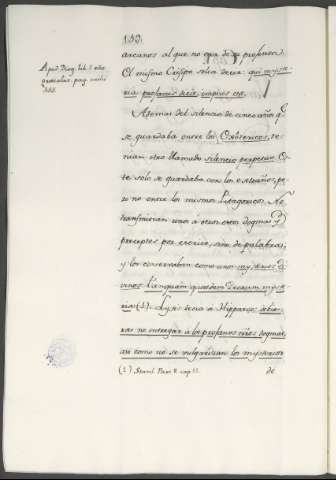 152.
arcanos al que no era de su profesion.
El mismo Crisipo solia decir: qui myste-
ria profanis dicit, impius est.
Ademas del silencio de cinco años q.e
se guardaba entre los Exotericos, te-
nian otro llamado silencio perpetuo. Es-
te solo se guardaba con los estraños, pe-
ro no entre los mismos Pitagoricos. Se
transmitian unos á otros estos dogmas y
preceptos por escrito, sino de palabras,
y los conservaban como unos mysterios di-
vinos tanquam quaedam Deorum myste-
ria (1). Lysis decia á Hipparco: debie-
ras no entregar á los profanos estos dogmas,
asi como no se vulgarizan los mysterios
(1) Stanl. Part. 8. cap. 11.
de
Apud
lib. 1
pag.